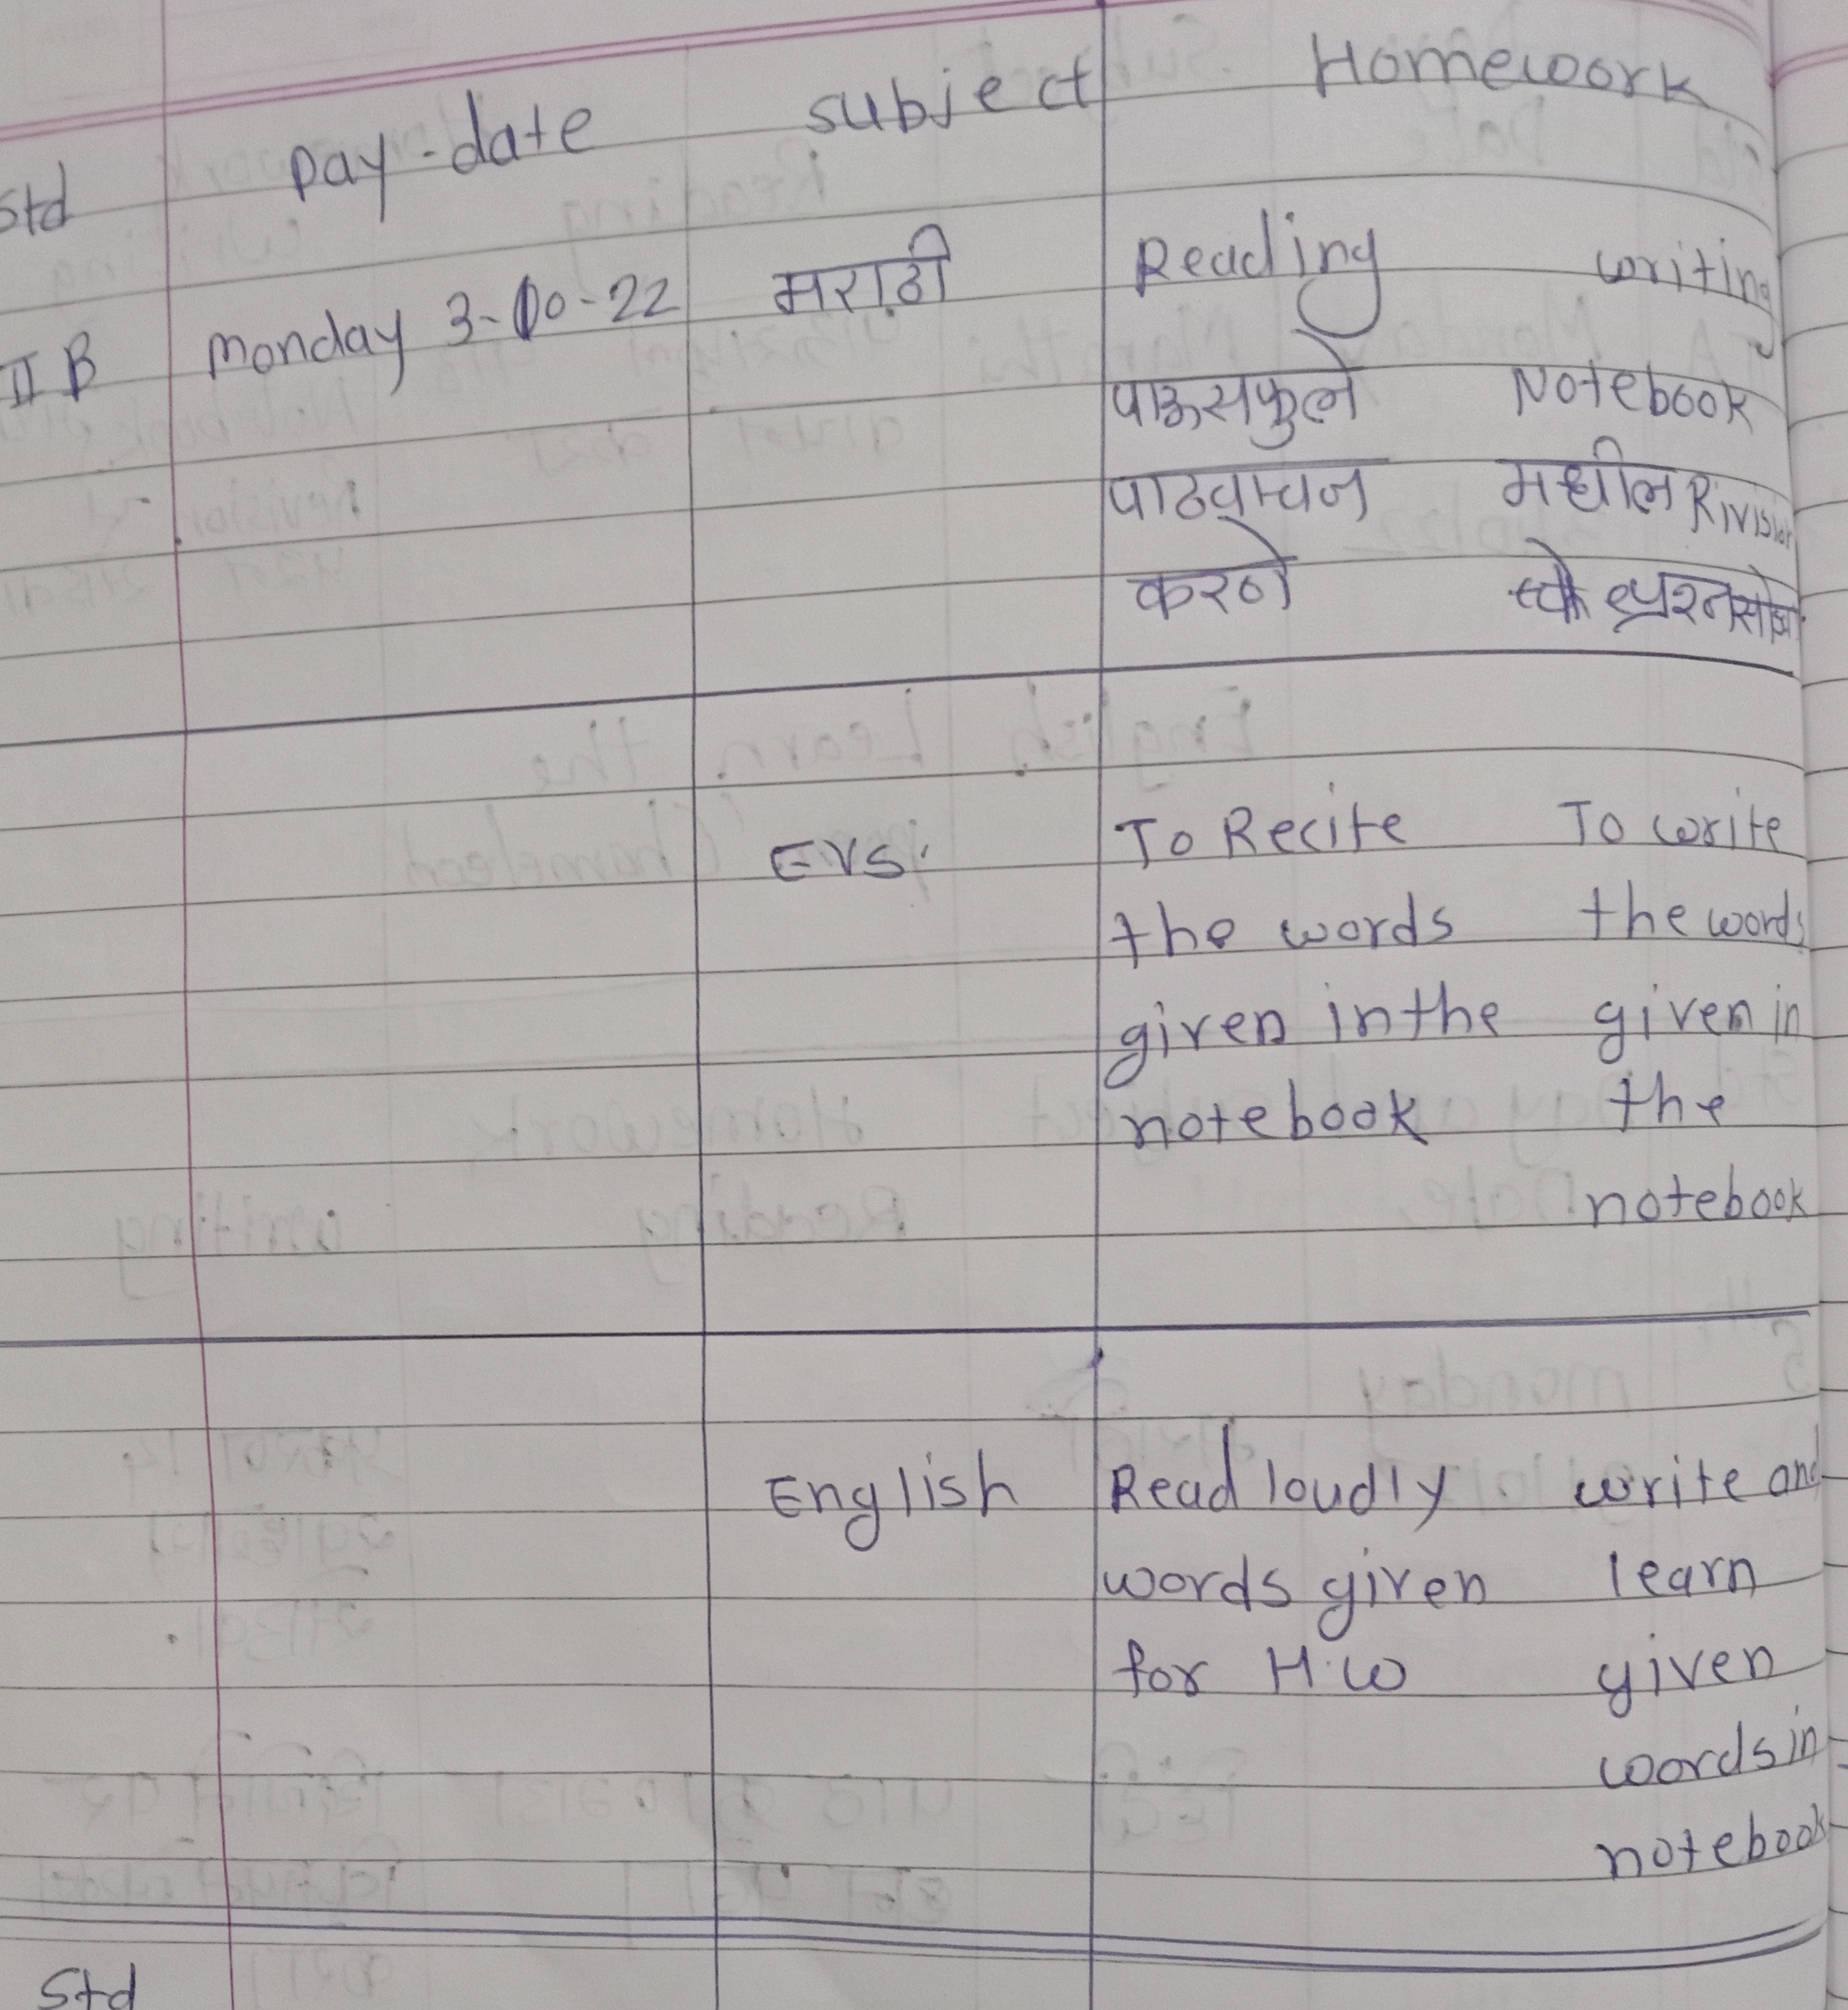 Std Day-date subject Homework
II B Monday 3-10-22 मराठी Reading writing
पाऊसफुले Notebook
पाठवाचन मधील Rivision
करणे चे प्रश्न
EVS. To Recite To write
the words the words
given in the given in
notebook the
notebook
English Read loudly write and
words given learn
for H.W given
words in
notebook
Std